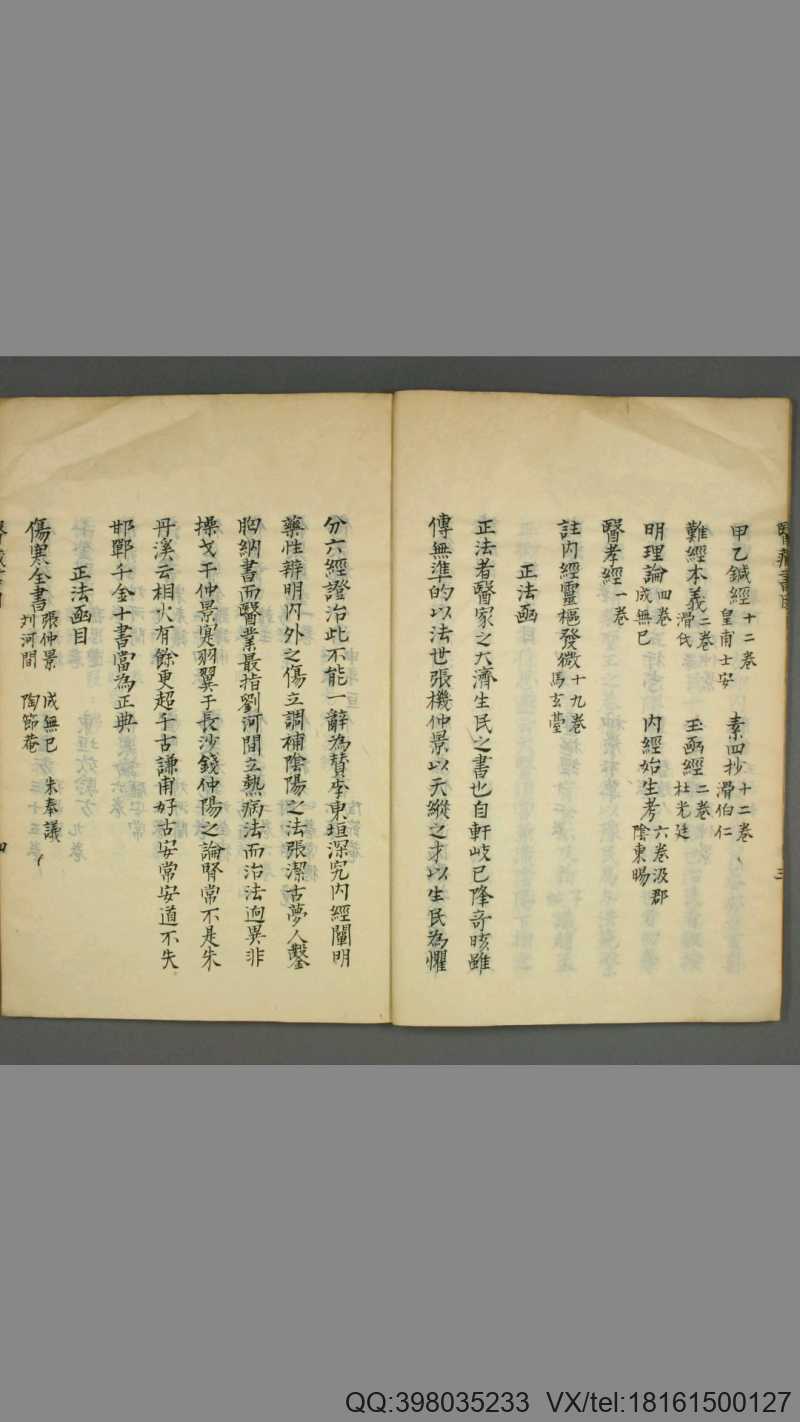 甲乙鍼經十二卷 皇甫士安 素四抄十二卷 滑伯仁
難經本義二卷 滑氏 玉函經二卷 杜光廷
明理論四卷 成無已 內經始生考六卷汲郡 陰東暘
醫孝經一卷
註內經靈樞發微十九卷 馬玄䑓
正法函
正法者醫家之大濟生民之書也自軒岐已降奇咳雖
傳無準的以法世張機仲景以天縱之才以生民為懼
分六經證治此不能一辭為贊李東垣深究內經闡明
藥性辨明內外之傷立調補陰陽之法張潔古夢人鑿
胸納書而醫業最指劉河間立熱病法而治法迥異非
操戈干仲景寔羽翼于長沙錢仲陽之論腎常不是朱
丹溪云相火有餘更超千古謙甫好古安常安道不失
邯鄲千金十書當為正典
正法函目
傷寒全書 張仲景 成無已 朱奉議 刘河間 陶節菴
QQ:398035233 VX/tel:18161500127